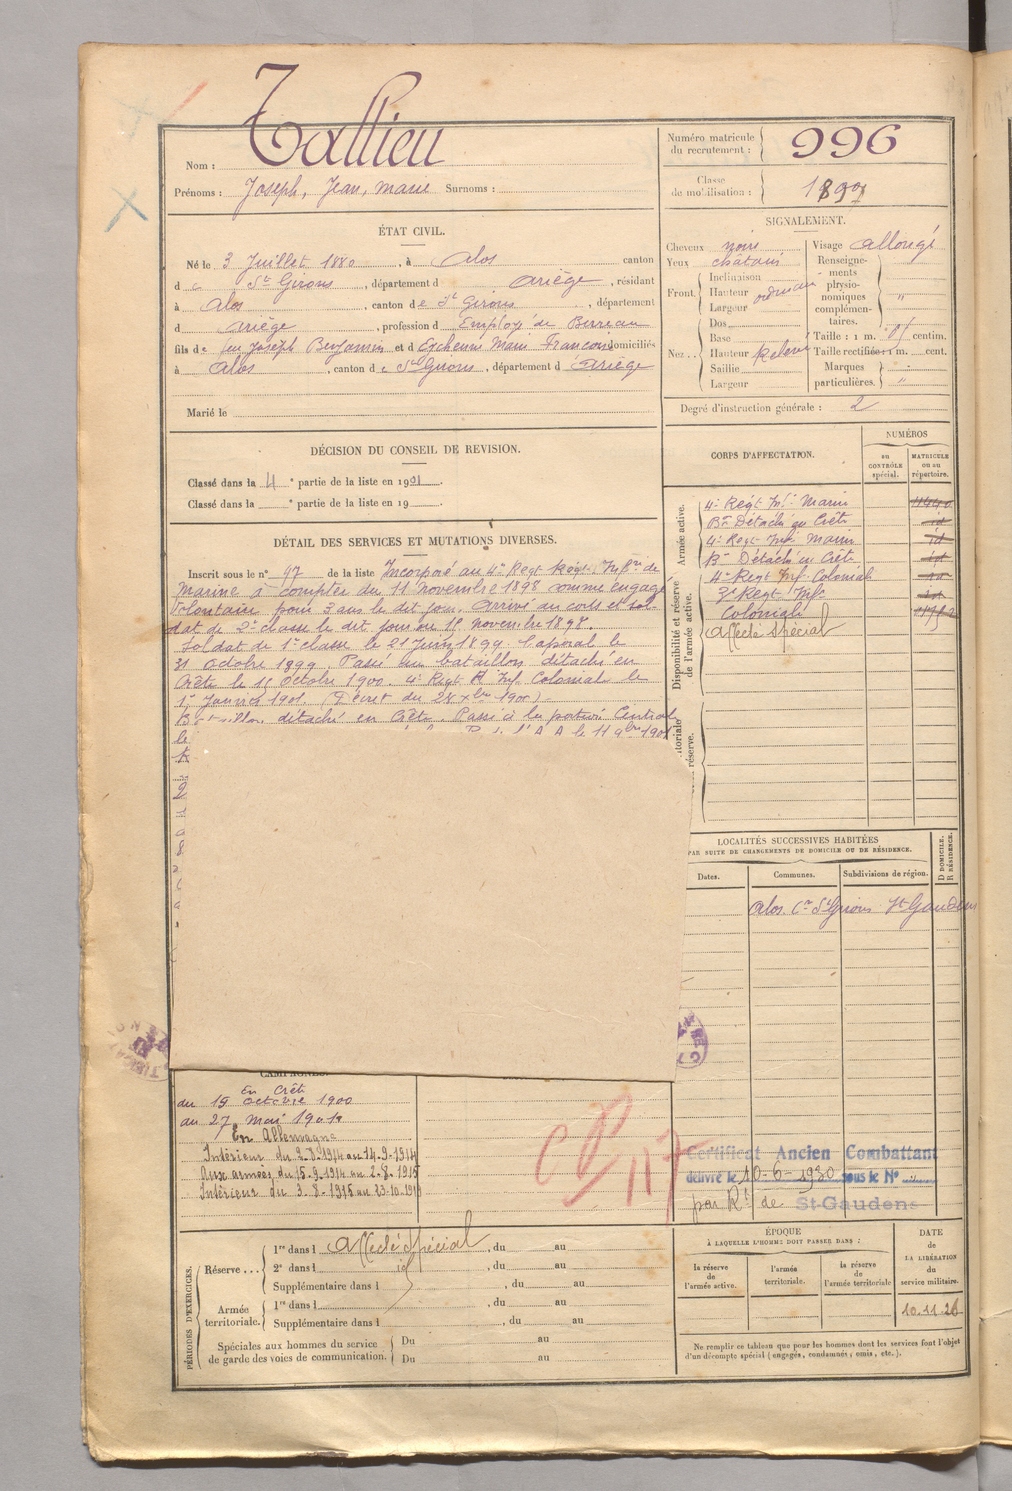 Nom : Tallieu
Prénoms : Joseph, Jean, Marie Surnoms :
Numéro matricule du recrutement : 996
Classe de mobilisation : 1897
ÉTAT CIVIL.
Né le 3 Juillet 1880, à Alos canton
d e St Girons, département d Ariège, résidant
à Alos, canton de St Girons, département
d Ariège, profession d Employé de Bureau
fils de feu Joseph Benjamin et d Eychenne Marie Françoise domiciliés
à Alos, canton de St Girons, département d Ariège
Marié le
SIGNALEMENT.
Cheveux noirs
Yeux châtain
Front. Inclinaison
Hauteur ordinaire
Largeur
Nez.. Dos
Base
Hauteur Relevé
Saillie
Largeur
Visage allongé
Renseignements physionomiques complémentaires. "
Taille : 1 m. centim.
Taille rectifiée : 1 m. cent.
Marques particulières. "
Degré d'instruction générale : 2
DÉCISION DU CONSEIL DE REVISION.
Classé dans la 4e partie de la liste en 1901.
Classé dans la e partie de la liste en 19
CORPS D'AFFECTATION.
NUMÉROS
au CONTRÔLE spécial.
MATRICULE ou au répertoire.
Armée active.
4e Régt Inf. Marine
Bon Détaché en Crète id
4e Régt Inf. Marine id
Bon Détaché en Crète id
Disponibilité et réserve de l'armée active.
4e Régt Inf. Coloniale
3e Régt Inf.
Coloniale
Affecté spécial
DÉTAIL DES SERVICES ET MUTATIONS DIVERSES.
Inscrit sous le n° 47 de la liste Incorporé au 4e Régt Régt Infrie de
Marine à compter du 11 novembre 1898 comme engagé
volontaire pour 3 ans le dit jour. Arrivé au corps et sol-
dat de 2e classe le dit jour 11 novembre 1898.
Soldat de 1e classe le 21 Juin 1899. Caporal le
31 Octobre 1899. Passé au bataillon détaché en
Crète le 15 Octobre 1900. 4e Régt d'Inf. Coloniale le
1er Janvier 1901. (Décret du 28 xbre 1900)
détaché en Crète. Passé à la portion Centrale
le
le 11 9bre 1901
LOCALITÉS SUCCESSIVES HABITÉES
PAR SUITE DE CHANGEMENTS DE DOMICILE OU DE RÉSIDENCE.
Dates. Communes. Subdivisions de région. D DOMICILE. R RÉSIDENCE.
Alos. Con St Girons St Gaudens
CAMPAGNES.
En Crète
du 19 octobre 1900
au 27 Mai 1901
En Allemagne
Intérieur du 2-8-1914 au 14-9-1914
Aux armées du 15-9-1914 au 2-8-1915
Intérieur du 3-8-1915 au 23-10-191
Certificat Ancien Combattant
délivré le 10-6-1930 sous le N°
par Rt de St-Gaudens
PÉRIODES D'EXERCICES.
Réserve .... 1re dans l Affecté spécial, du au
2e dans l id, du au
Supplémentaire dans l , du au
Armée territoriale. 1re dans l , du au
Supplémentaire dans l , du au
Spéciales aux hommes du service de garde des voies de communication. Du au
Du au
ÉPOQUE
À LAQUELLE L'HOMME DOIT PASSER DANS :
la réserve de l'armée active.
l'armée territoriale.
la réserve de l'armée territoriale
DATE de LA LIBÉRATION du service militaire.
10.11.26
Ne remplir ce tableau que pour les hommes dont les services font l'objet
d'un décompte spécial (engagés, condamnés, omis, etc.).